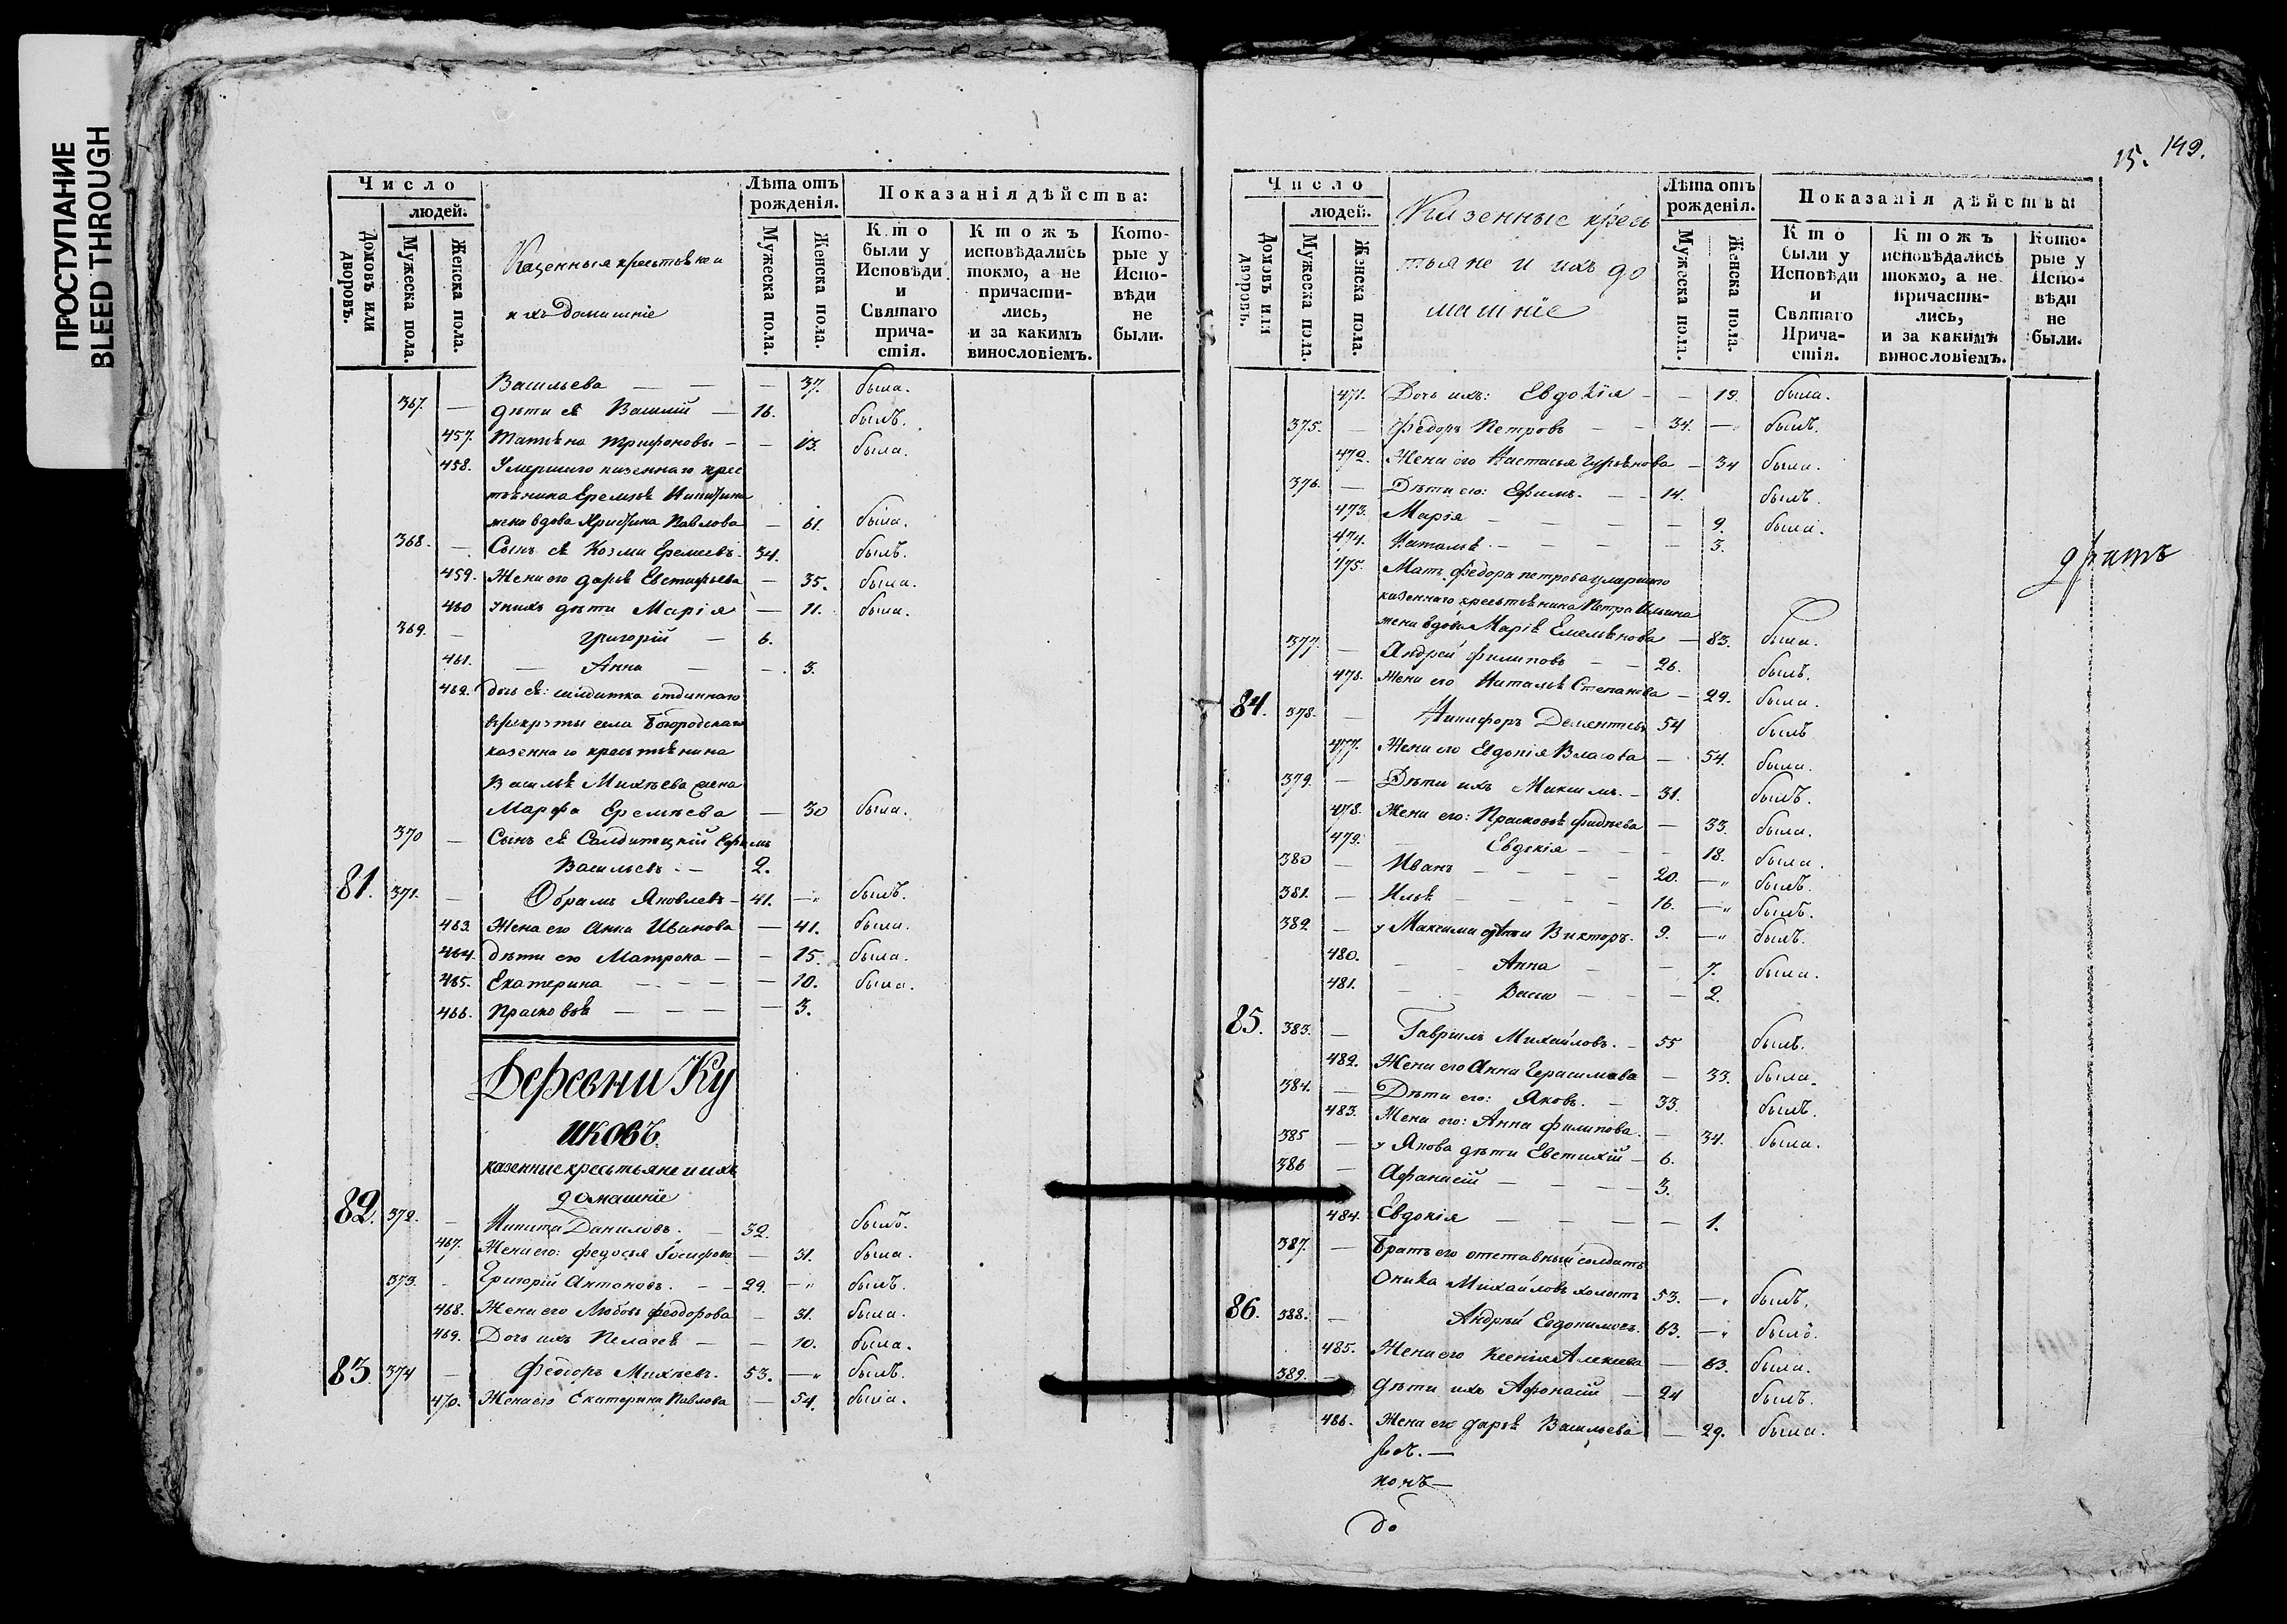 ПРОСТУПАНИЕ
BLEED THROUGH
Число
людей.
Домовъ или дворовъ.
Мужеска пола.
Женска пола.
Казенныя крестьяне и
ихъ домашніе
Лѣта отъ рожденія.
Мужеска пола.
Женска пола.
Показанія дѣйства:
Кто были у Исповѣди и Святаго причастія.
Ктожъ исповѣдались токмо, а не причастились, и за какимъ винословіемъ.
Которые у Исповѣди не были.
Васильева — — — 37. была.
367. — дѣти ея Василій — 16. былъ.
457. Татьяна Трифоновы — — 13. была.
458. Умершаго казеннаго крес
тьянина Еремѣя Никитина
жена вдова Христина Павлова — 61. была.
368. — Сынъ ея Козма Еремеевъ. 34. былъ.
459. Жена его Дарья Евстафьева — 35. была.
460 у нихъ дѣти Марія — 11. была.
369. — Григорій — 6.
461. — Анна — — 3.
462. дочь ея: солдатка отданнаго
въ рекруты села Богородскаго
казеннаго крестьянина
Василья Михѣева жена
Марфа Еремѣева — 30 была.
370 — Сынъ ея Салдатцкій Ефимъ
Васильевъ. — 2.
81. 371. — Абрамъ Яковлевъ — 41. — былъ.
463. Жена его Анна Иванова — 41. была.
464. дѣти его Матрона — — 15. была.
465. Екатерина — — — — 10. была.
466. Прасковья — — — — 3.
Деревни Ку
иковъ
казенные крестьяне и ихъ
домашніе
82. 372. — Никита Даниловъ. — 32. былъ.
467. Жена его: Федосья Іосифова — 31. была.
373. — Григорій Антоновъ. — — 29. — былъ.
468. Жена его Любовь Феодорова — 31. была.
469. Дочь ихъ Пелагея — — 10. была.
83. 374 — Феодоръ Михѣевъ. 53. — былъ.
470. Жена его Екатерина Павлова — 54. была.
15. 149.
Число
людей.
Домовъ или дворовъ.
Мужеска пола.
Женска пола.
Казенные крес
тьяне и ихъ до
машніе
Лѣта отъ рожденія.
Мужеска пола.
Женска пола.
Показанія дѣйства:
Кто были у Исповѣди и Святаго Причастія.
Ктожъ исповѣдались токмо, а не причастились, и за какимъ винословіемъ.
Которые у Исповѣди не были.
471. Дочь ихъ: Евдокія — — 19. была.
375. — Федоръ Петровъ — — 34. — былъ.
472. Жена его Настасья Гурьянова — 34 была.
376. — Дѣти его: Ефимъ. — — 14. былъ.
473. Марія — — — — 9. была.
474. Наталья. — — — — 3.
475. Мать Федора Петрова умершаго
казеннаго крестьянина Петра Ильина
жена вдова Марія Емельянова — 83. была.
377. — Андрей Филиповъ — — 26. былъ.
476. Жена его Наталья Степанова — 29. была.
84. 378. — Никифоръ Дементьевъ 54 былъ
477. Жена его Евдокія Власова — 54. была.
379. — Дѣти ихъ Максимъ. — 31. былъ.
478. Жена его: Прасковья Фадѣева — 33. была.
479. Евдокія — — — 18. была.
380 — Иванъ — — — — 20. — былъ.
381. — Илья — — — — 16. — былъ.
382. — у Максима дѣти Викторъ. 9. — былъ.
480. — — Анна — — 7. была.
481. — — Васса — — — 2.
85. 383. — Гаврилъ Михайловъ. — 55 былъ.
482. Жена его Анна Герасимова — 33. была.
384. — Дѣти его: Яковъ. — 33. былъ.
483. Жена его: Анна Филипова. — 34. была.
385 — у Якова дѣти Евстихій — 6.
386 — Афанасій — — — — 3.
484. Евдокія — — — — — 1.
387. — Братъ его отставный солдатъ
Оника Михайловъ холостъ 53. — былъ.
86. 388. — Андрѣй Евдокимовъ. 63. — былъ.
485. Жена его Ксенія Алексеева — 63. была.
389. — дѣти ихъ Афонасій — 24 былъ.
486. Жена его Дарья Васильева — 29. была.
понъ —
до